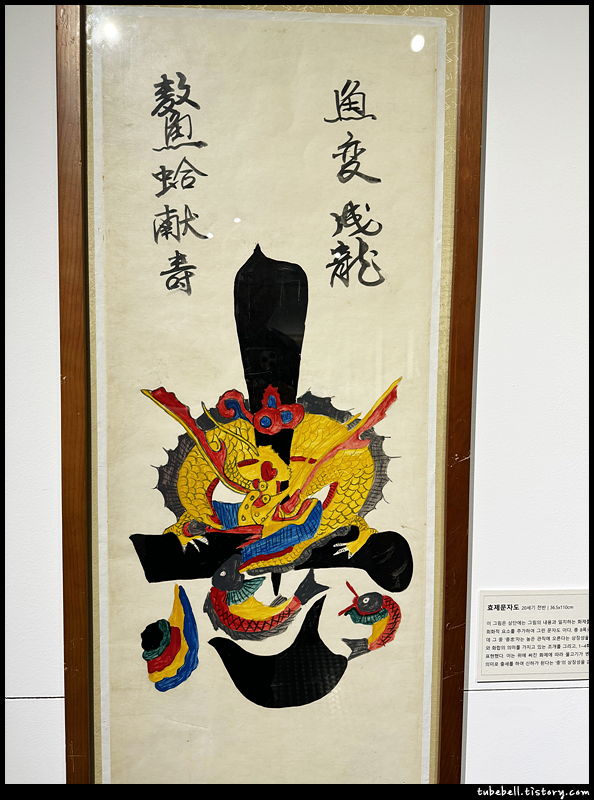 魚変成龍
鰲蛤献寿
忠
효제문자도 20세기 전반 | 36.5x110cm
이 그림은 상단에는 그림의 내용과 일치하는
회화적 요소를 추가하여 그린 문자도 이다. 총
데 그 중 '충忠'자는 높은 관직에 오른다는 상징성을
와 화합의 의미를 가지고 있는 조개를 그리고,
표현했다. 이는 위에 써진 화제에 따라 물고기가
의미로 출세를 하여 신하가 된다는 '충'의 상징성을
tubebell.tistory.com